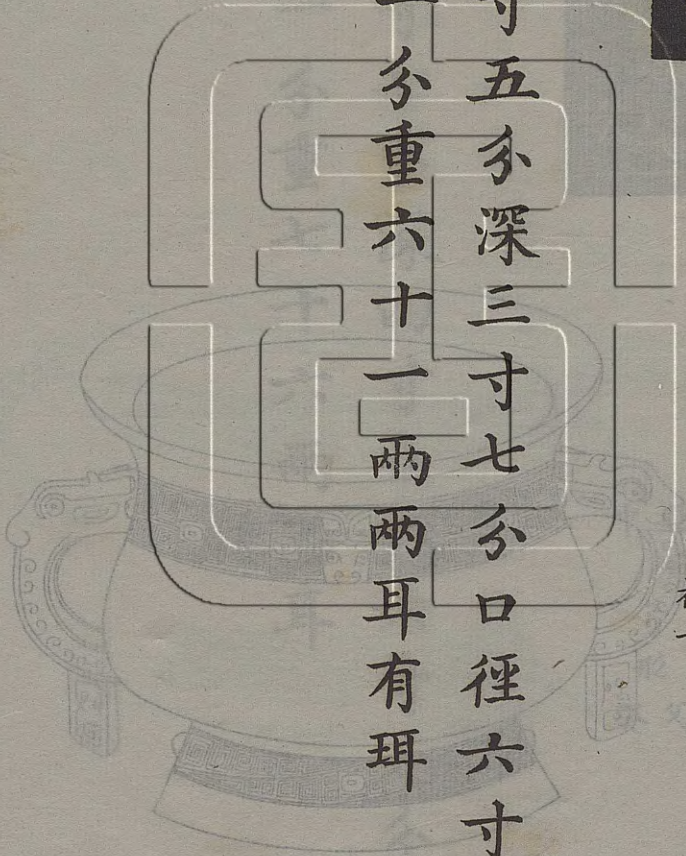 寸五分深三寸七分口徑六寸
分重六十一兩兩耳有珥